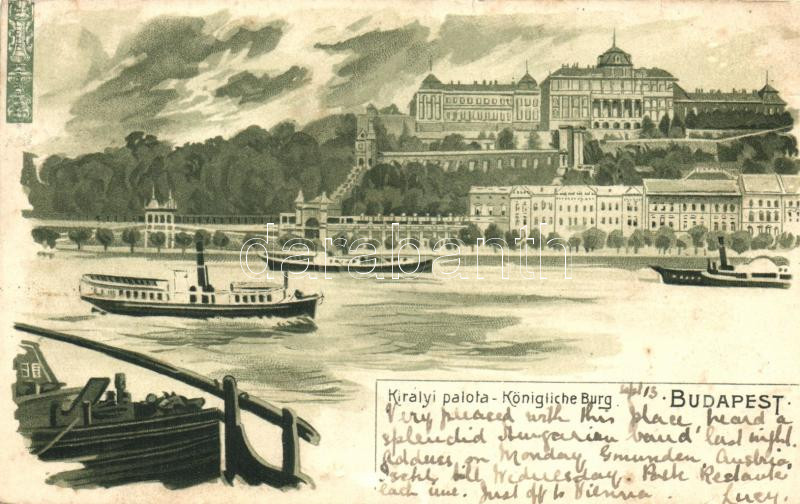 darabanth
Királyi palota - Königliche Burg.
BUDAPEST.
Very pleased with this place, heard a
splendid Hungarian band last night.
Address on Monday, Gmunden, Austria,
Ischl till Wednesday. Post Restante
each time. Just off to Vienna.
Lucy.